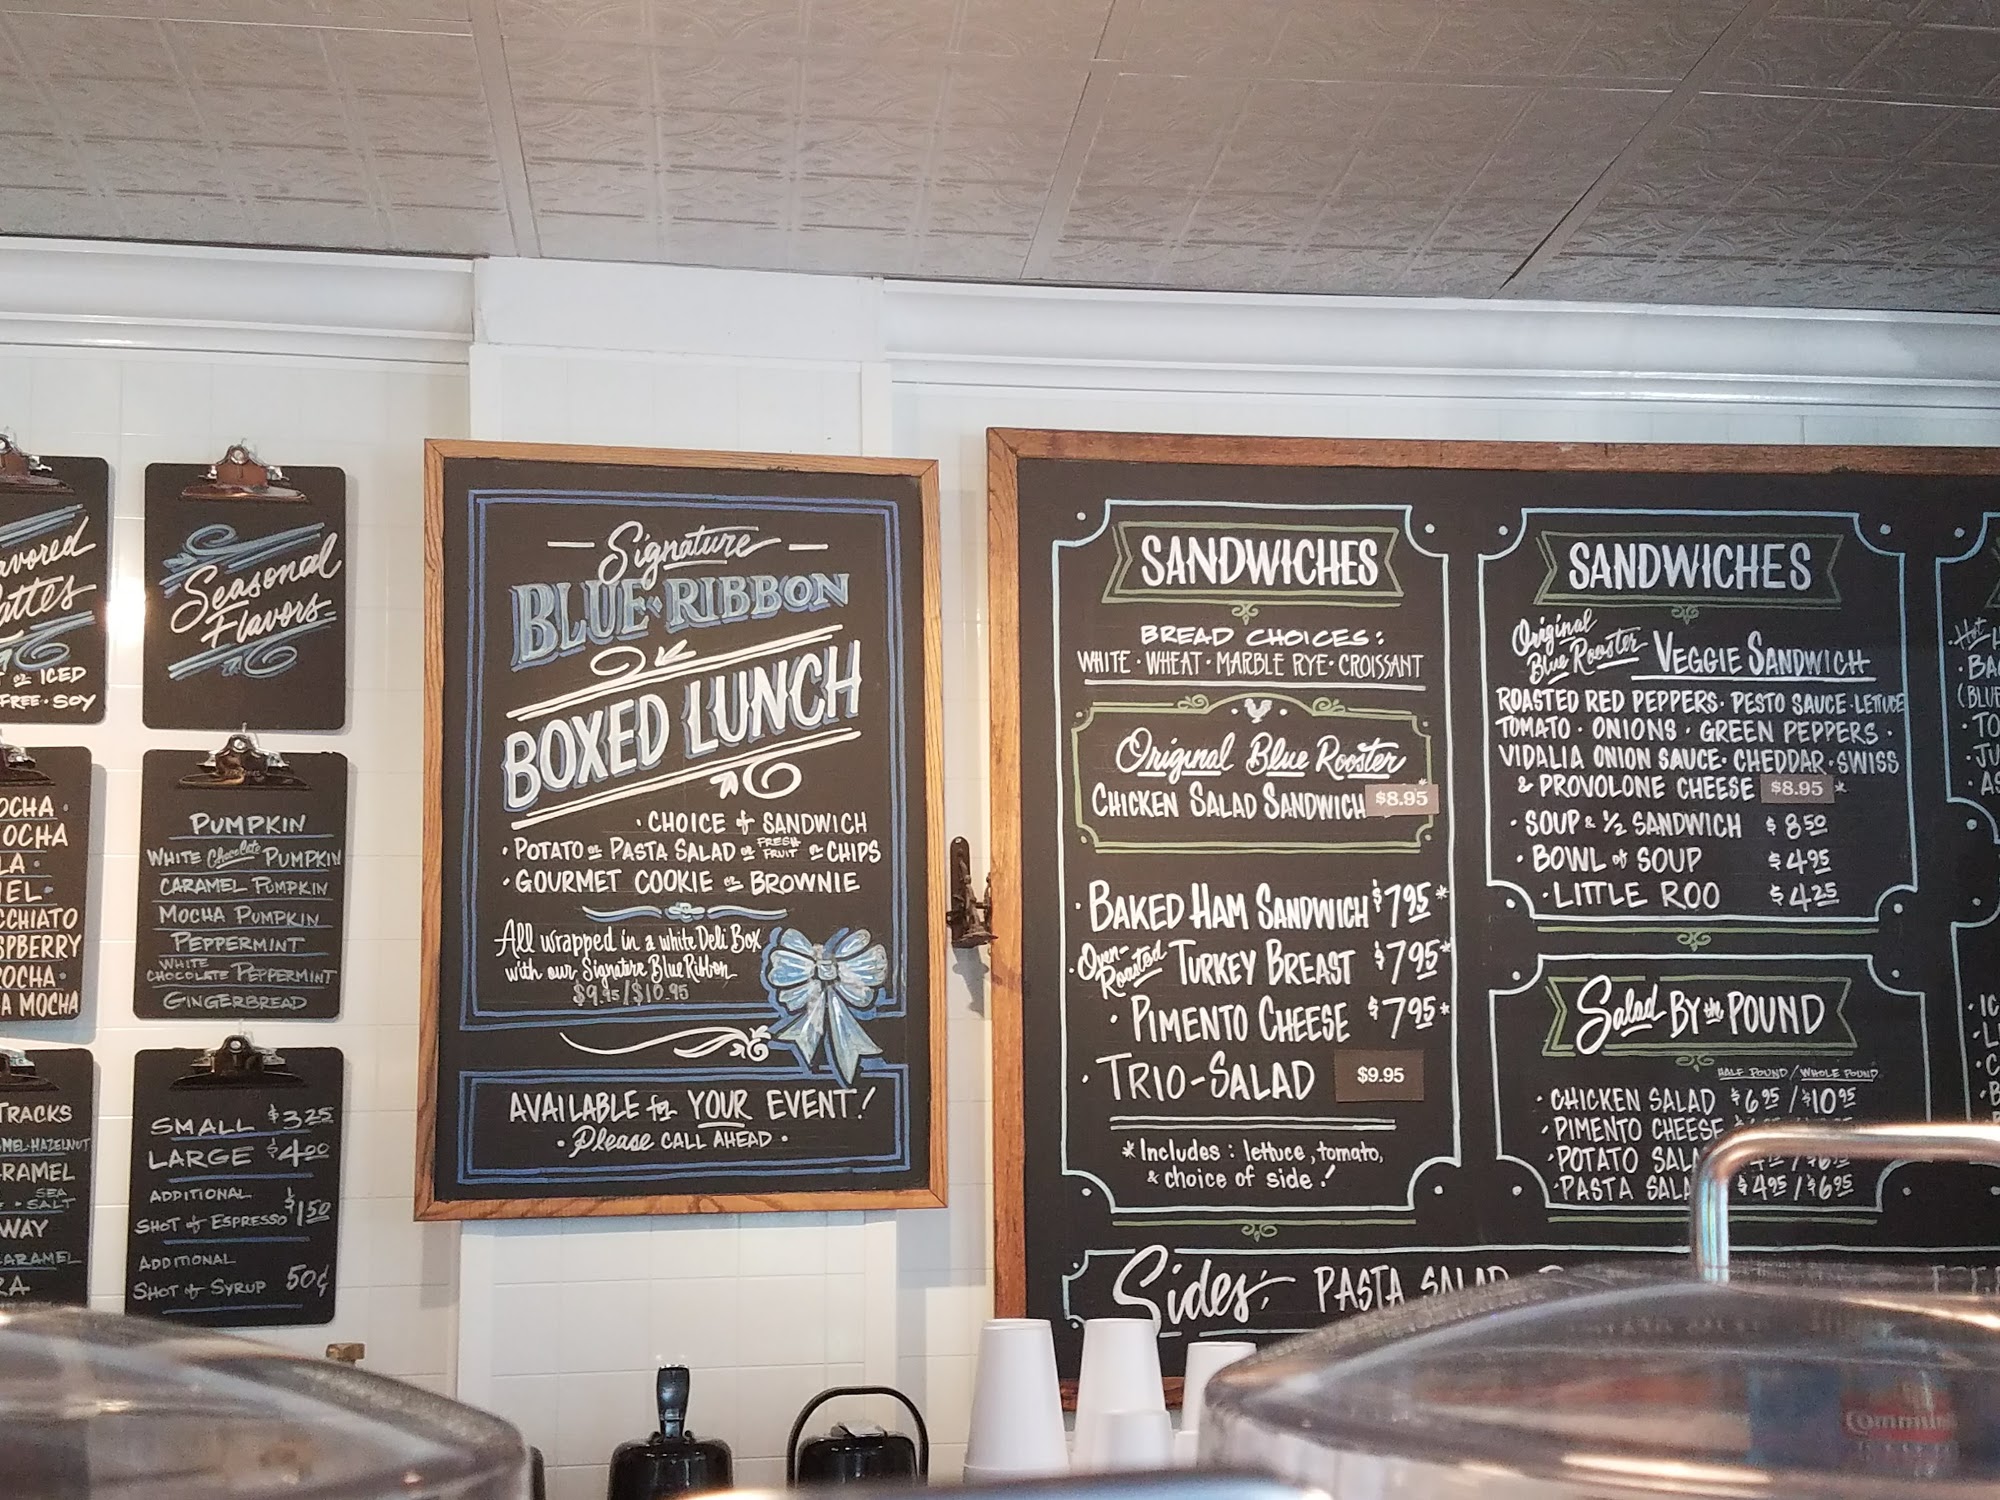 avored
attes
or ICED
FREE · SOY
OCHA ·
OCHA
LA ·
EL ·
CCHIATO
SPBERRY
OCHA ·
A MOCHA
TRACKS
MEL-HAZELNUT
RAMEL
SEA
SALT
WAY
CARAMEL
RA
Seasonal
Flavors
PUMPKIN
WHITE Chocolate PUMPKIN
CARAMEL PUMPKIN
MOCHA PUMPKIN
PEPPERMINT
WHITE
CHOCOLATE PEPPERMINT
GINGERBREAD
SMALL $3.25
LARGE $4.00
ADDITIONAL
SHOT of ESPRESSO $1.50
ADDITIONAL
SHOT of SYRUP 50¢
Signature
BLUE · RIBBON
BOXED LUNCH
· CHOICE of SANDWICH
· POTATO or PASTA SALAD or FRESH FRUIT or CHIPS
· GOURMET COOKIE or BROWNIE
All wrapped in a white Deli Box
with our Signature Blue Ribbon
$9.95/$10.95
AVAILABLE for YOUR EVENT!
· Please CALL AHEAD ·
SANDWICHES
BREAD CHOICES:
WHITE · WHEAT · MARBLE RYE · CROISSANT
Original Blue Rooster
CHICKEN SALAD SANDWICH $8.95 *
· BAKED HAM SANDWICH $7.95*
· Oven-Roasted TURKEY BREAST $7.95*
· PIMENTO CHEESE $7.95*
· TRIO-SALAD $9.95
* Includes: lettuce, tomato,
& choice of side!
SANDWICHES
Original Blue Rooster VEGGIE SANDWICH
ROASTED RED PEPPERS · PESTO SAUCE · LETTUCE
TOMATO · ONIONS · GREEN PEPPERS ·
VIDALIA ONION SAUCE · CHEDDAR · SWISS
& PROVOLONE CHEESE $8.95 *
· SOUP & 1/2 SANDWICH $8.50
· BOWL of SOUP $4.95
· LITTLE ROO $4.25
Salad BY the POUND
HALF POUND / WHOLE POUND
· CHICKEN SALAD $6.95 / $10.95
· PIMENTO CHEESE
· POTATO SALA
· PASTA SALA $4.95 / $6.95
Sides: PASTA SALAD
Hot
· BA
(BLUE
· TO
· JU
· AS
· IC
· L
· C
Commun